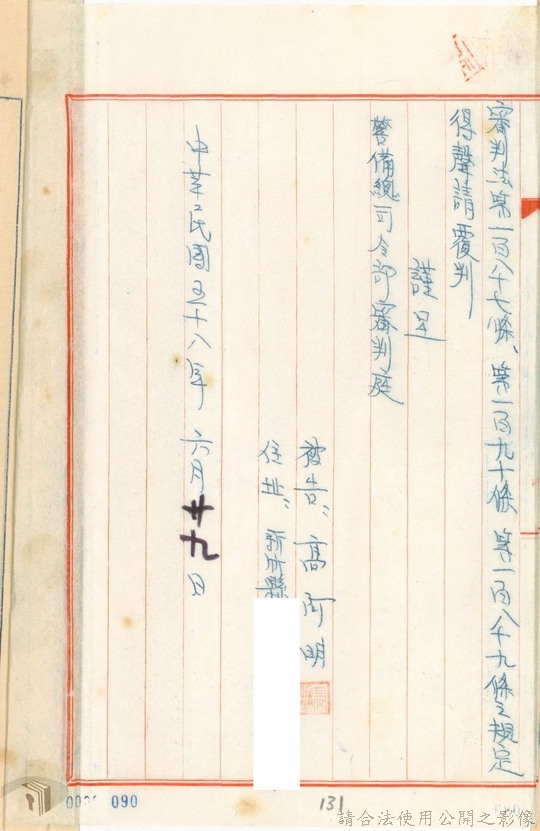 審判法第一百八十七條、第一百九十條 第一百八十九條之規定
得聲請覆判
謹呈
警備總司令部審判庭
被告：高阿明
住址：新竹縣
中華民國五十八年 六月廿九日
090
131
請合法使用公開之影像